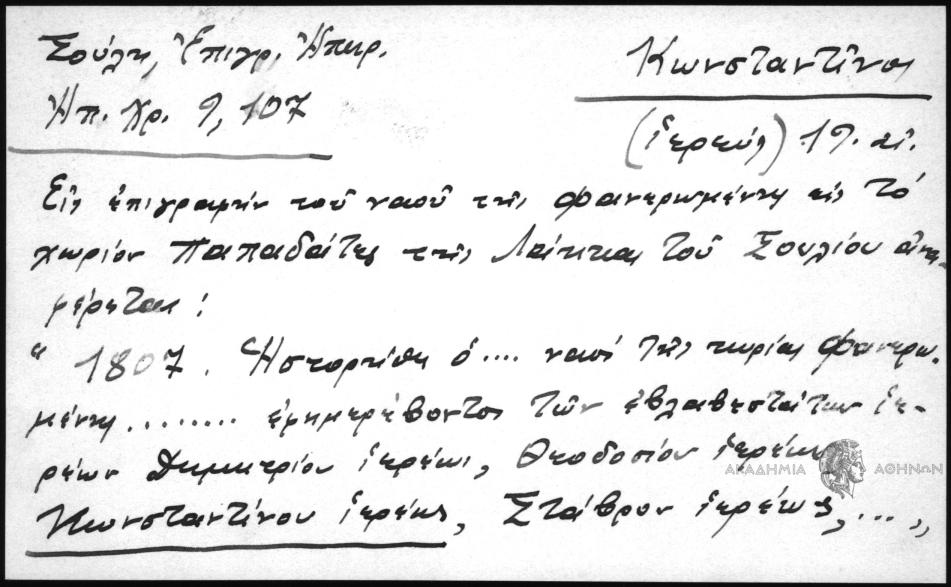 Σούλη, Ἐπιγρ. Ἠπειρ.
Ἠπ. Χρ. 9, 107
Κωνσταντῖνος
(ἱερεύς) 19. αἰ.
Εἰς ἐπιγραφήν τοῦ ναοῦ τῆς Φανερωμένης εἰς τό
χωρίον Παπαδάτες τῆς Λάκκας τοῦ Σουλίου ἀνα-
φέρεται:
" 1807. Ἡστορτίθη ὁ.... ναός τῆς κυρίας Φανερω-
μένης........ ἐφημερέβοντος τῶν ἐβλαβεστάτων ἱε-
ρέων Δημητρίου ἱερέως, Θεοδοσίου ἱερέως
Κωνσταντίνου ἱερέως, Στάβρου ἱερέως,...,,
ΑΚΑΔΗΜΙΑ ΑΘΗΝΩΝ